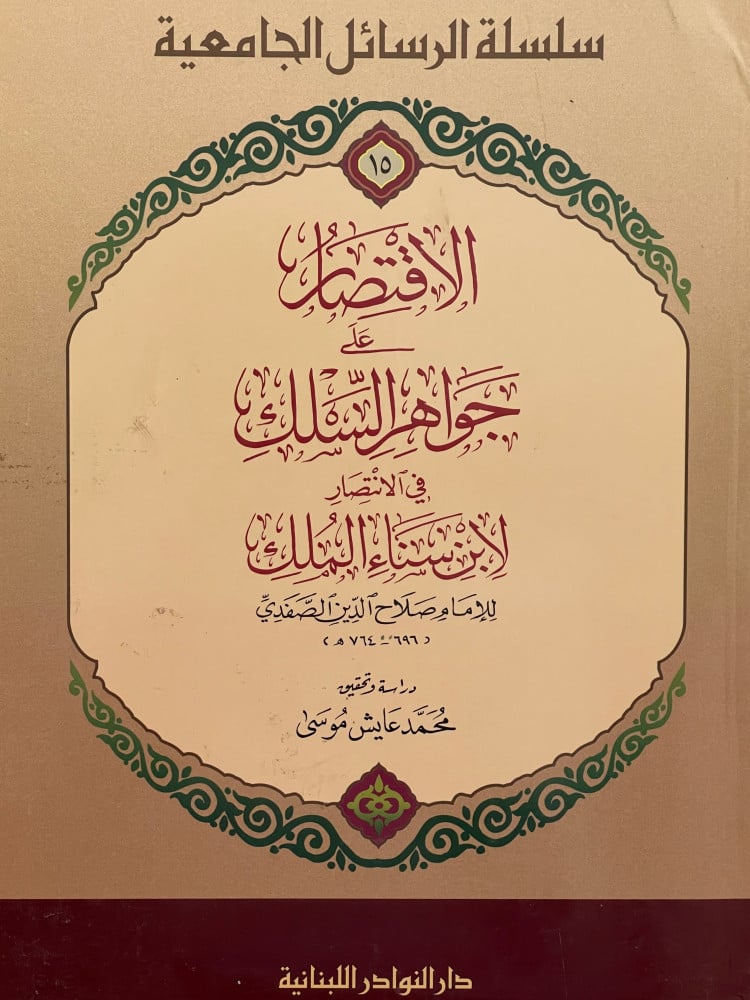 سلسلة الرسائل الجامعية
١٥
الاقْتِصَارُ
عَلَى
جَوَاهِرِ السِّلْكِ
فِي الانْتِصَارِ
لِابْنِ سَنَاءِ المُلْكِ
لِلإِمَامِ صَلَاحِ الدِّينِ الصَّفَدِيِّ
(٦٩٦ - ٧٦٤ هـ)
دراسة وتحقيق
مُحَمَّد عَايش مُوسَى
دار النوادر اللبنانية